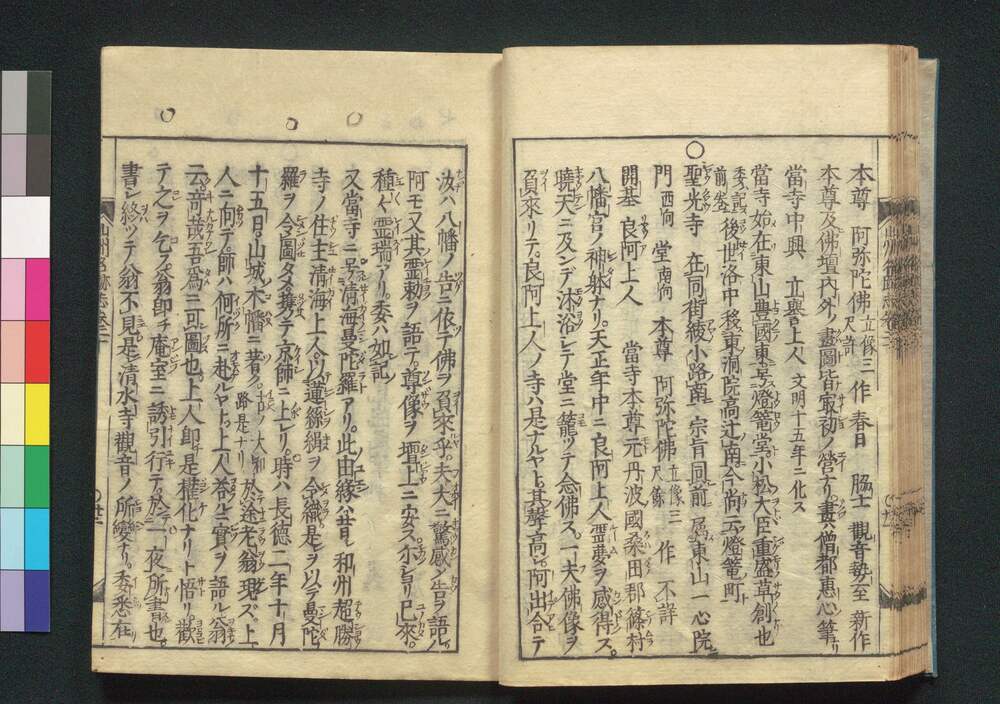 本尊 阿弥陀佛 立像三尺許 作 春日 脇士 觀音勢至 新作
本尊及佛壇内外ノ畫圖皆最初ノ營ナリ畫ハ僧都惠心筆ナリ
當寺中興 立譽上人 文明十五年ニ化ス
當寺始在東山豐國東号燈篭堂小松大臣重盛草創也
委記前巻 後世洛中移東洞院高辻南今尚云燈篭町
聖光寺 在同街綾小路南 宗旨同前 属東山一心院
門西向 堂南向 本尊 阿弥陀佛 立像三尺餘 作 不詳
開基 良阿上人 當寺本尊元丹波國桑田郡篠村
八幡宮ノ神躰ナリ天正年中ニ良阿上人霊夢ヲ感得ス
曉天ニ及ンデ沐浴シテ堂ニ篭ツテ念佛ス一夫佛像ヲ
負來リテ良阿上人ノ寺ハ是ナルヤト其聲高シ阿出合テ
汝ハ八幡ノ告ニ依テ佛ヲ負來乎夫大ニ驚感シ告ヲ語ル
阿モ又其霊勅ヲ語テ尊像ヲ壇上ニ安ス尓ショリ已來
種々霊瑞アリ委ハ如記
又當寺ニ号清海曼陀羅アリ此由緣ハ昔日 和州超勝
寺ノ住主清海上人以蓮絲絹ヲ令織是ヲ以テ曼陀
羅ヲ令圖タメ携テ京師ニ上レリ時ハ長德二年十月
十五日山城木幡ニ著ク古ノ大和路是ナリ 於途老翁現ズ上
人ニ向テ師ハ何所ニ赴ルヤト上人答ルニ實ヲ語ル翁
云奇哉吾爲ニ可圖也上人即チ是權化ナリト悟リ歡
テ之ヲ乞ス翁即チ庵室ニ誘引行テ於テ一夜所書也
書シ終ツテ翁不見是清水寺觀音ノ所變ナリ委悉在
山州名跡志巻之二